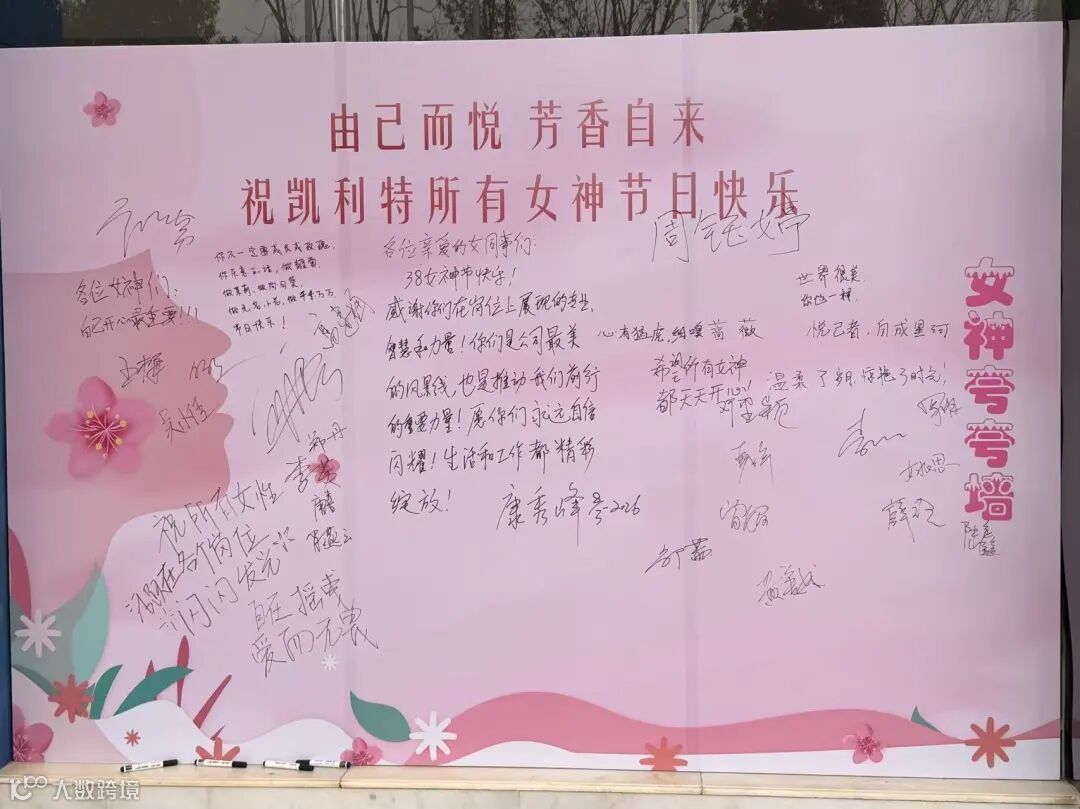 由己而悦 芳香自来
祝凯利特所有女神节日快乐
周钰婷
各位女神们：
自己开心最重要!!!
王梅
你不一定要成长成玫瑰，
你乐意的话，做雏菊，
做茉莉，做向日葵，
做无名小花，做千千万万
节日快乐！
各位亲爱的女同事们：
38女神节快乐！
感谢你们在岗位上展现的专业、
智慧和力量！你们是公司最美
的风景线，也是推动我们前行
的重要力量！愿你们永远自信
闪耀！生活和工作都精彩
绽放！
康秀峰
2026
世界很美，
你也一样。
心有猛虎，细嗅蔷薇
悦己者，自成星河
希望所有女神
都天天开心！
温柔了岁月，惊艳了时光！
郑丹
李英
祝所有女性
在各个岗位
闪闪发光
自在摇曳
爱而无畏
女神夸夸墙
大数跨境